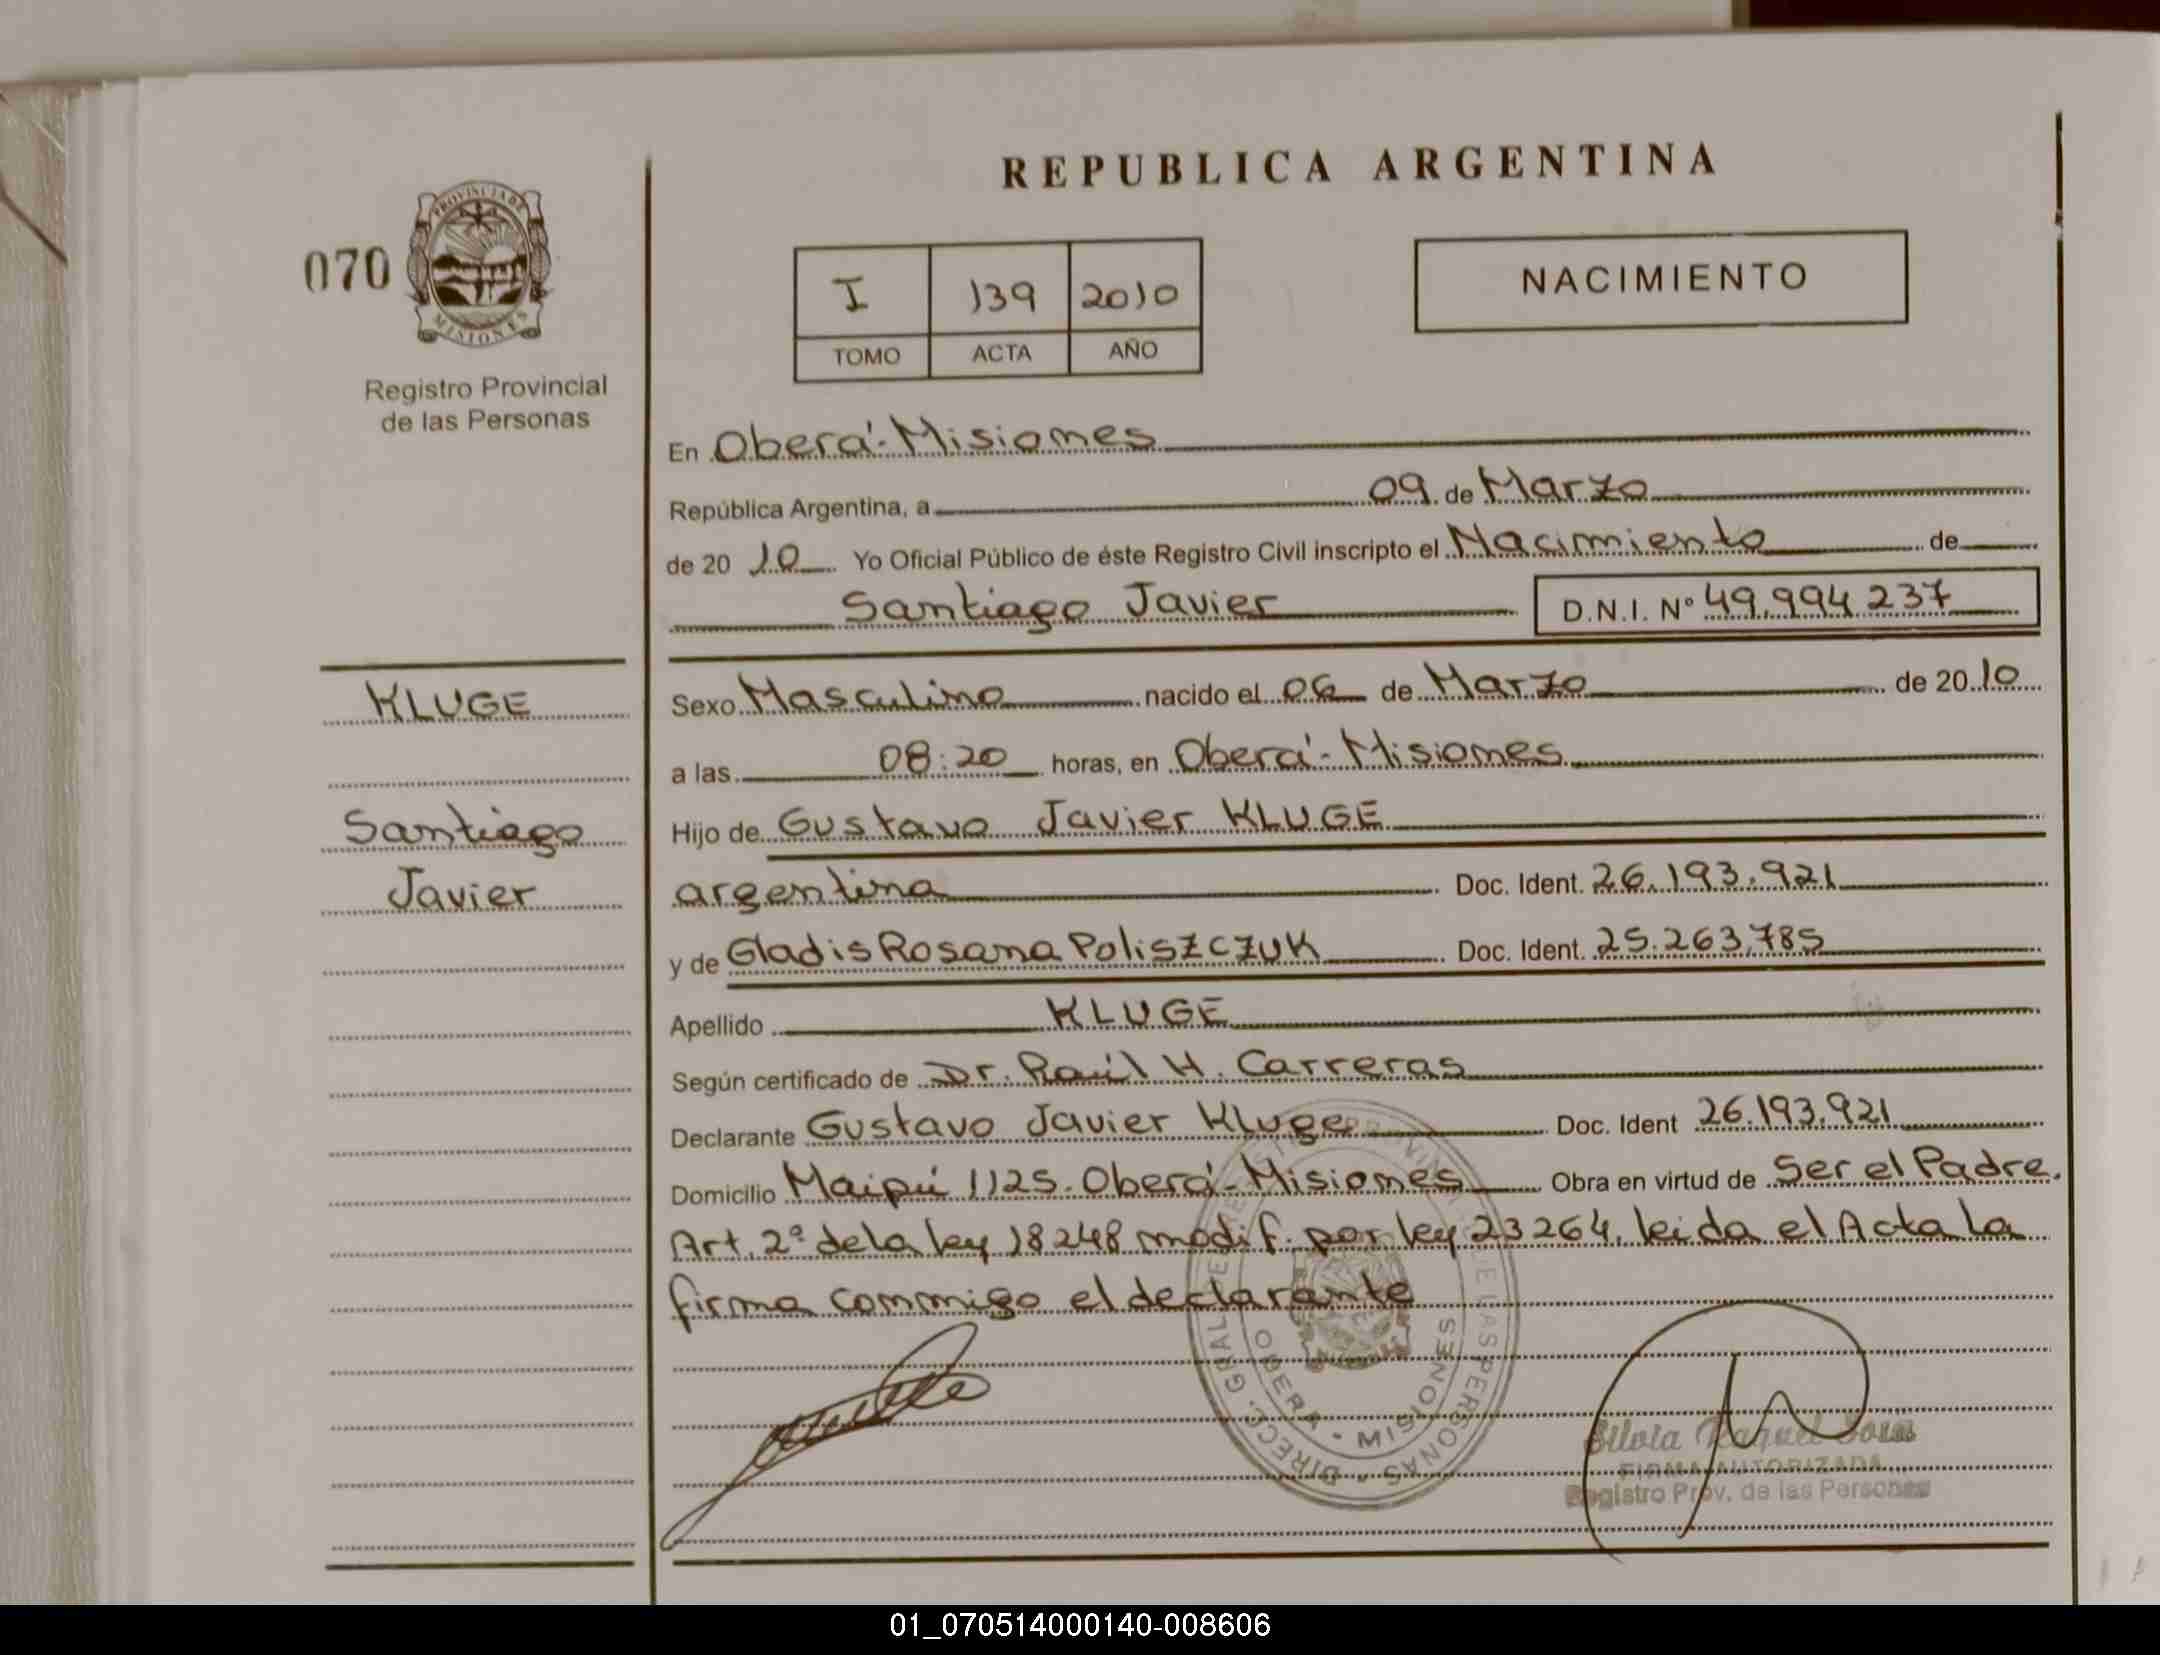 REPUBLICA ARGENTINA
070
PROVINCIA DE
MISIONES
Registro Provincial
de las Personas
I 139 2010
TOMO ACTA AÑO
NACIMIENTO
En Oberá-Misiones
República Argentina, a 09 de Marzo
de 20 10 Yo Oficial Público de éste Registro Civil inscripto el Nacimiento de
Santiago Javier D.N.I. Nº 49.994 237
KLUGE
Santiago
Javier
Sexo Masculino nacido el 06 de Marzo de 20 10
a las 08:20 horas, en Oberá-Misiones
Hijo de Gustavo Javier KLUGE
argentina Doc. Ident. 26.193.921
y de Gladis Rosana Poliszczuk Doc. Ident. 25.263.785
Apellido KLUGE
Según certificado de Dr. Raúl H. Carreras
Declarante Gustavo Javier Kluge Doc. Ident 26.193.921
Domicilio Maipú 1125-Oberá-Misiones Obra en virtud de Ser el Padre.
Art. 2º de la ley 18248 modif. por ley 23264, leida el Acta la
firma conmigo el declarante
OBERA - MISIONES
Silvia Raquel Sosa
FIRMA AUTORIZADA
Registro Prov. de las Personas
01_070514000140-008606